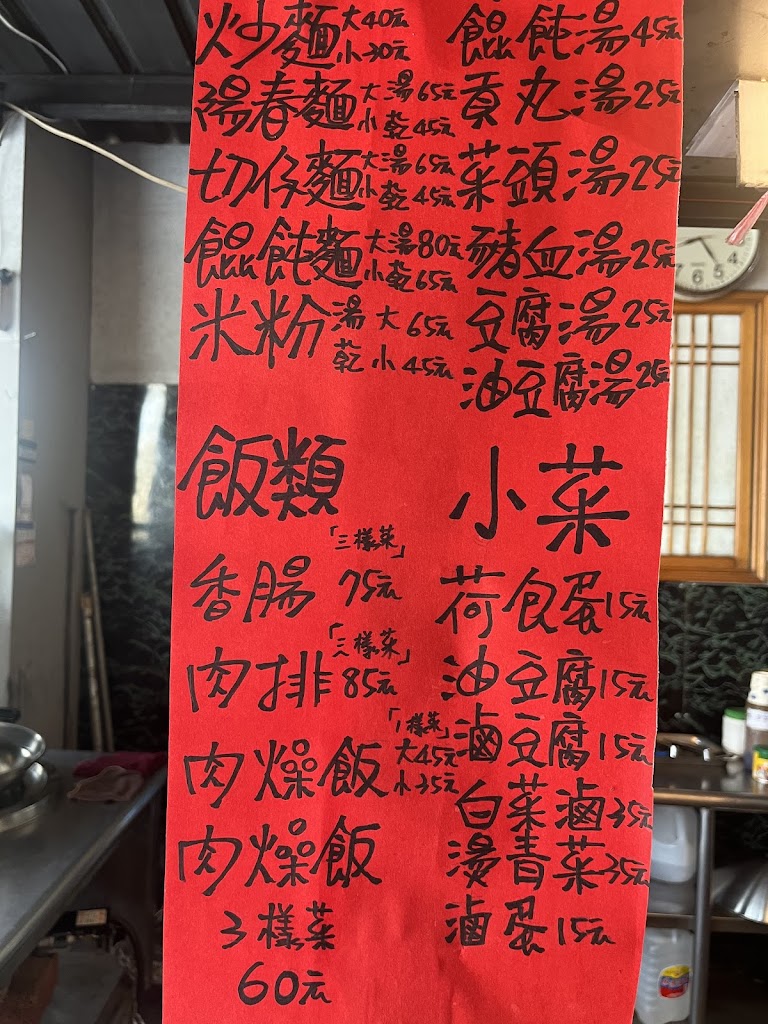 炒麵 大40元 小30元
陽春麵 大湯65元 小乾45元
切仔麵 大湯65元 小乾45元
餛飩麵 大湯80元 小乾65元
米粉 湯大65元 乾小45元
餛飩湯45元
貢丸湯25元
菜頭湯25元
豬血湯25元
豆腐湯25元
油豆腐湯25元
飯類
香腸 「三樣菜」 75元
肉排 「三樣菜」 85元
肉燥飯 「1樣菜」 大45元 小35元
肉燥飯
3樣菜
60元
小菜
荷包蛋15元
油豆腐15元
滷豆腐15元
白菜滷35元
燙青菜35元
滷蛋15元